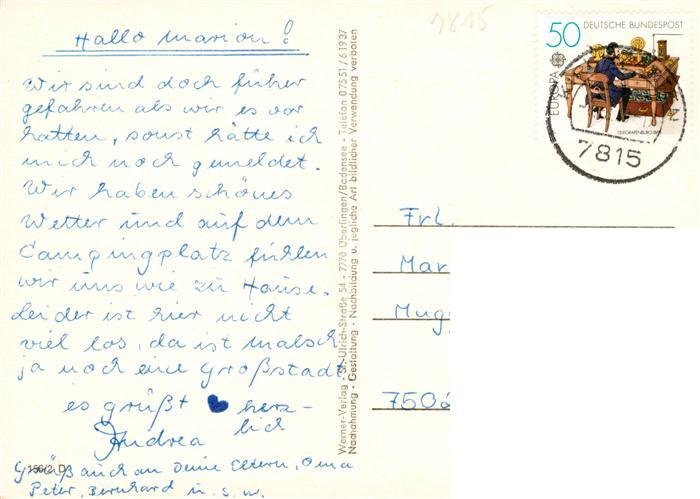 Hallo Marion!
Wir sind doch früher
gefahren als wir es vor
hatten, sonst hätte ich
mich noch gemeldet.
Wir haben schönes
Wetter und auf dem
Campingplatz fühlen
wir uns wie zu Hause.
Leider ist hier nicht
viel los, da ist malsch
ja noch eine Großstadt
es grüßt herz-
lich
Andrea
Grüß auch an Deine Eltern, Oma
Peter, Bernhard u. s. w.
156/2 D
Werner-Verlag · St.-Ulrich-Straße 54 · 7770 Überlingen/Bodensee · Telefon 07551/61937
Nachahmung · Gestaltung · Nachbildung u. jegliche Art bildlicher Verwendung verboten
7815
50 DEUTSCHE BUNDESPOST
EUROPA
7815
Frl.
Mar
Mug
750